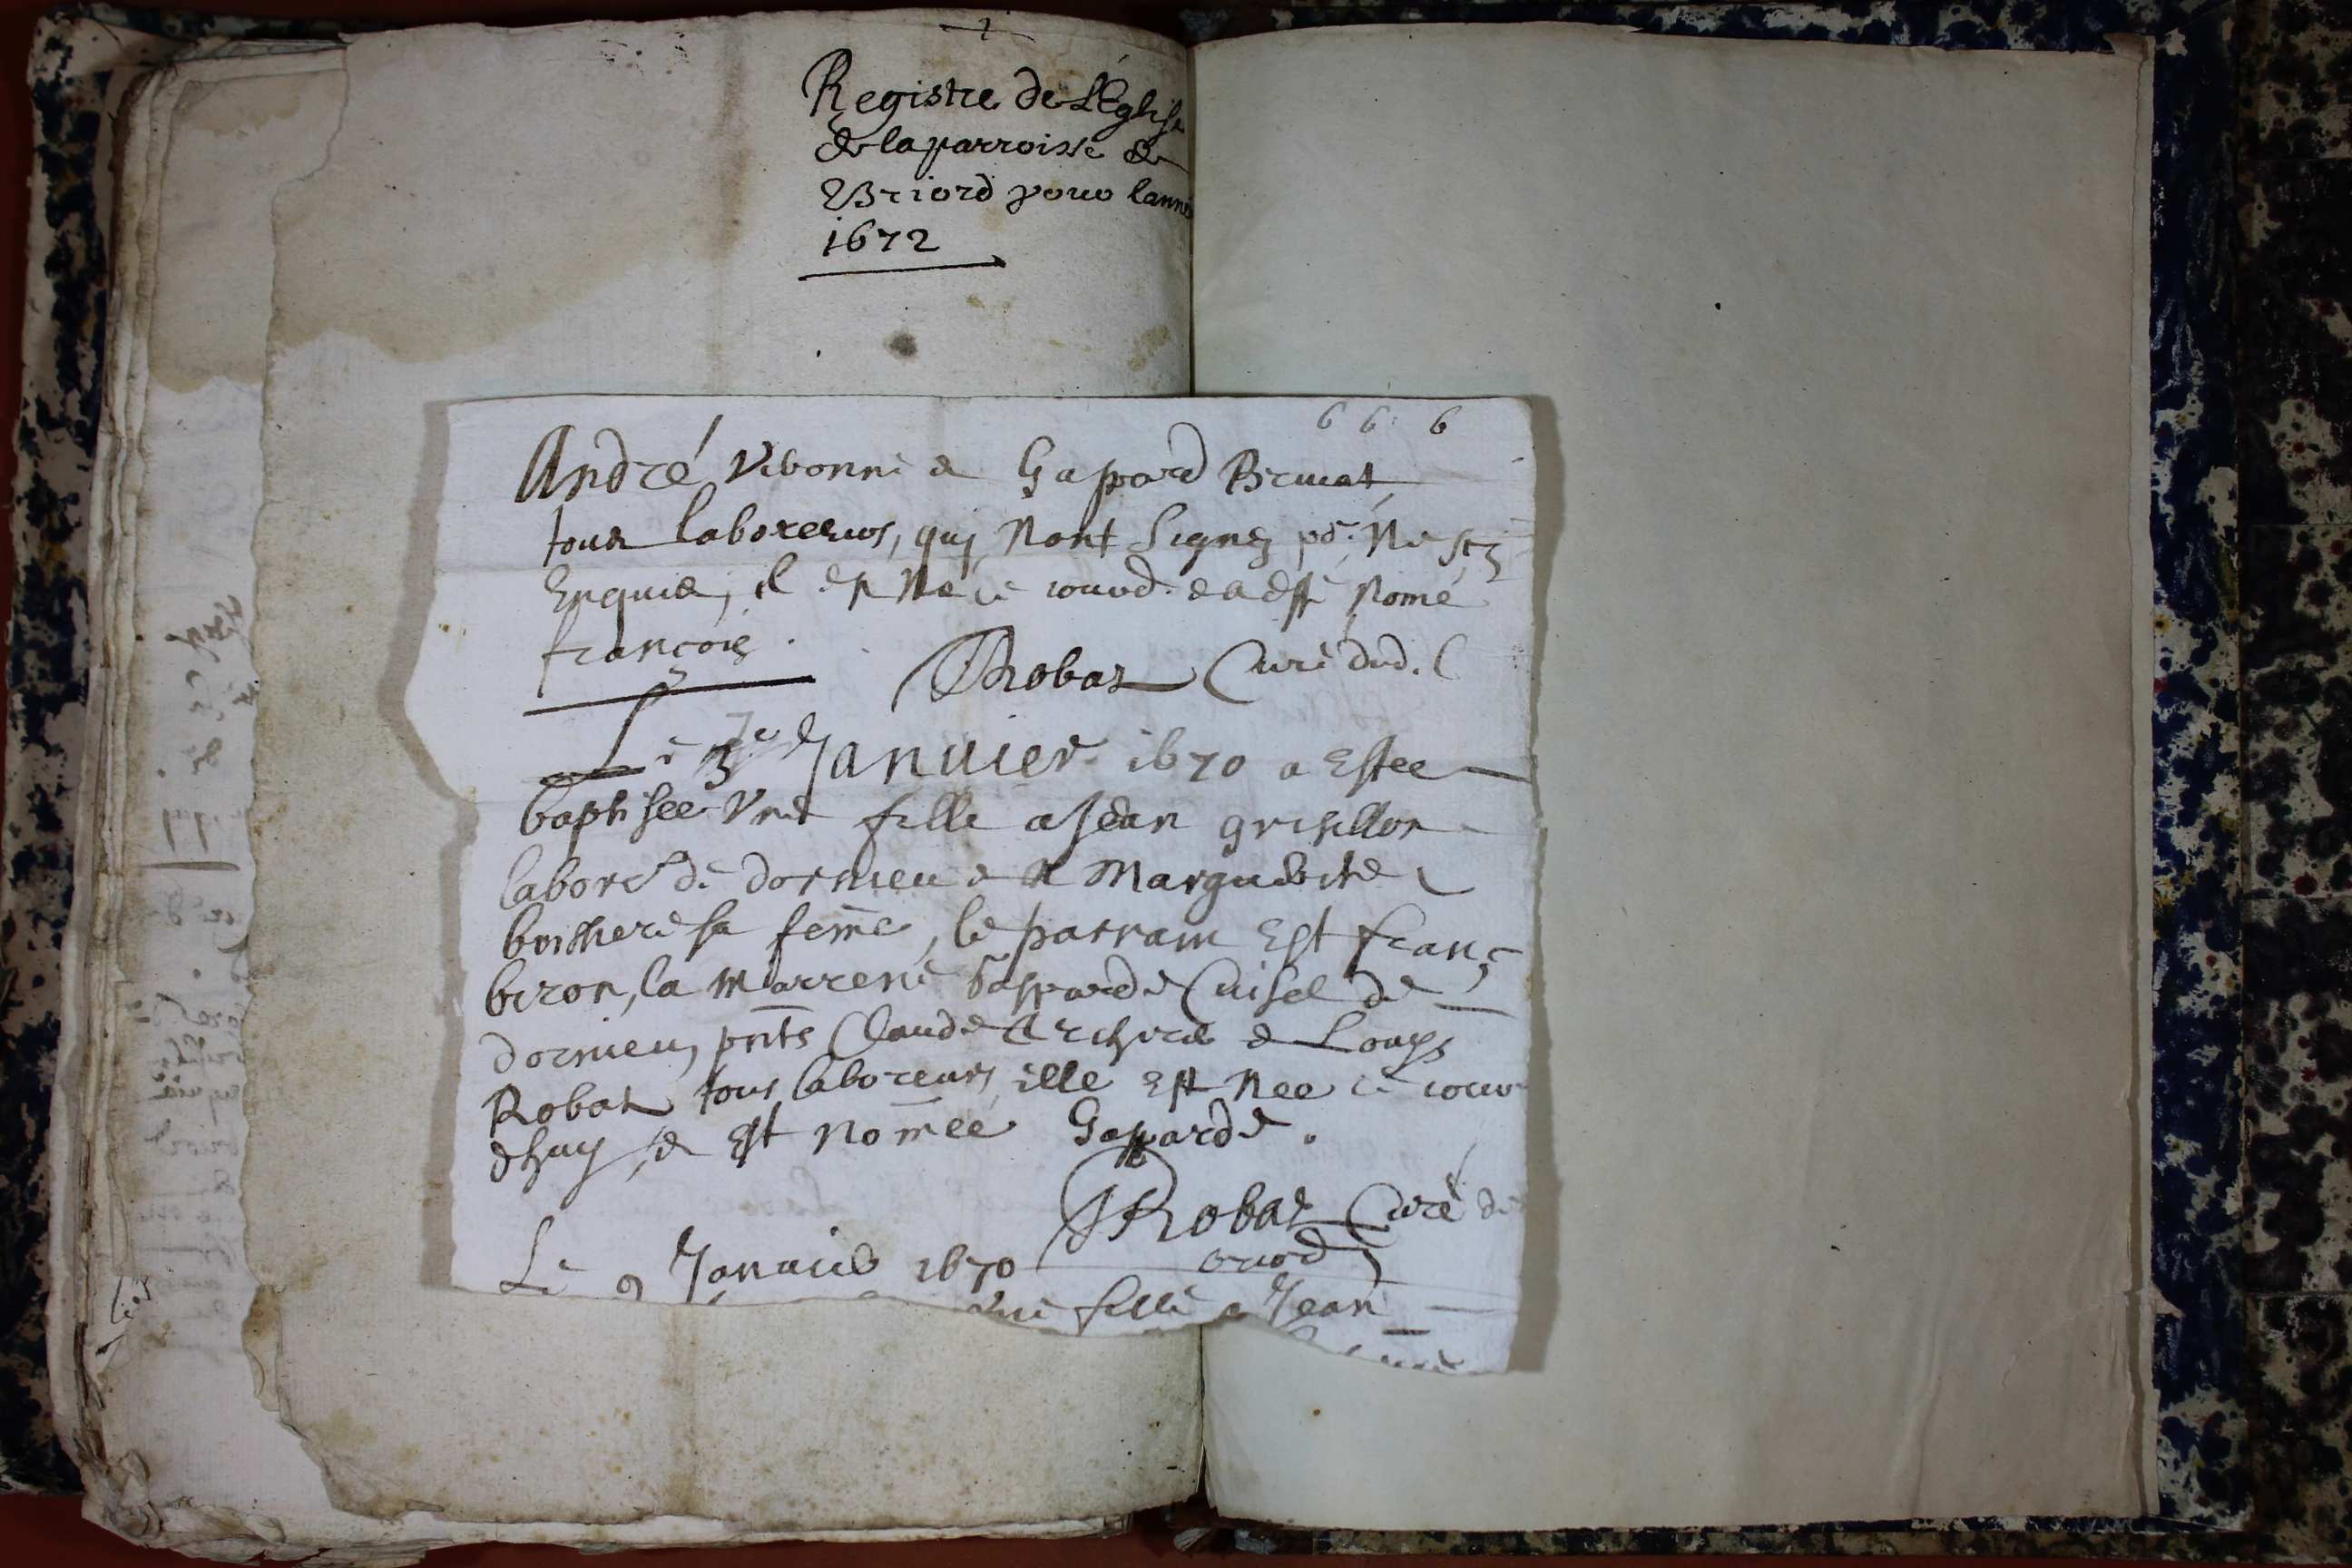 Registre de L'Eglise
de la parroisse de
Briord pour lannée
1672
6 6 6
André Vibonne & Gaspard Brunat
tous laboreurs, qui Nont Signez po.
Enquis, il est Né ce jourd. & a esté Nomé
françois.
Robat Curé dud.
Le 3e Januier 1670 a Estee
baptisee Vne fille a Jean grisillon
labor.r de dornieu & a Marguerite
sa feme, le parrain Est franç
biron, la marrene Gasparde Cuisel de
dornieu, pnts Claude & Louys
Robat tous laboreurs, ille Est Nee ce jour
dhuy, & Est nomee Gasparde.
Robat Curé de
briord
Le 9 Januier 1670
Vne fille a Jean